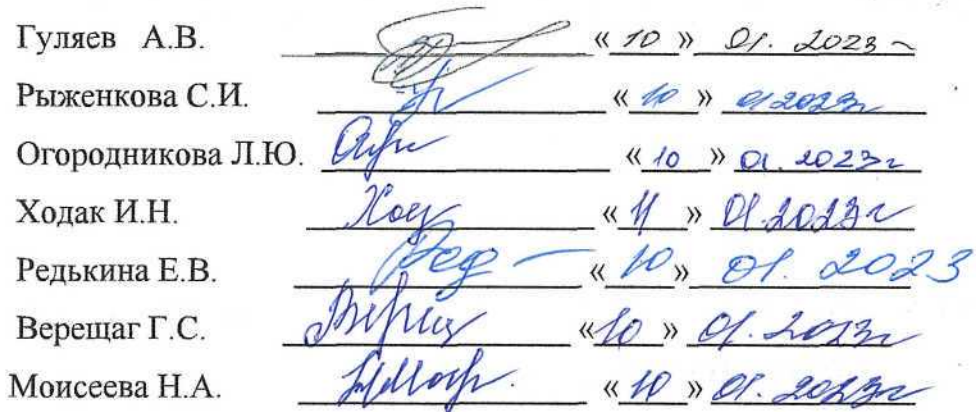 Гуляев А.В. « 10 » 01. 2023 г
Рыженкова С.И. « 10 » 01 2023г
Огородникова Л.Ю. « 10 » 01. 2023г
Ходак И.Н. Ход « 11 » 01.2023г
Редькина Е.В. Ред « 10 » 01. 2023
Верещаг Г.С. « 10 » 01. 2023г
Моисеева Н.А. « 10 » 01. 2023г